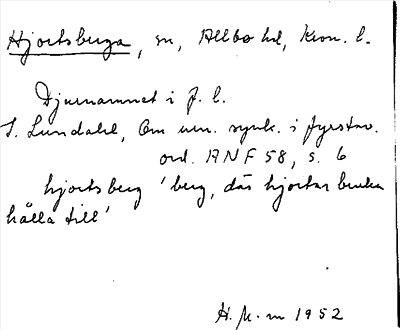 Hjortsberga, sn, Allbo hd, Kron. l.
Djurnamnet i f. l.
I. Lundahl, Om un. synk. i fyrstav.
ord. ANF 58, s. 6
hjortsberg 'berg, där hjortar bruka
hålla till'
H. M-m 1952